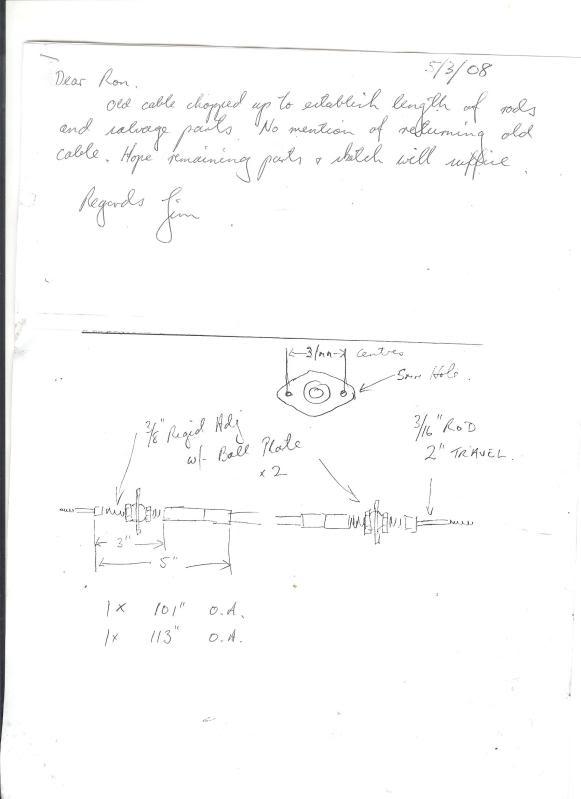 5/3/08
Dear Ron.
Old cable chopped up to establish length of rods
and salvage parts. No mention of returning old
cable. Hope remaining parts & sketch will suffice.
Regards Jim
31mm centres
5mm Hole.
3/8" Rigid Adj
w/- Ball Plate
x 2
3/16" ROD
2" TRAVEL.
3"
5"
1x 101" O.A.
1x 113" O.A.